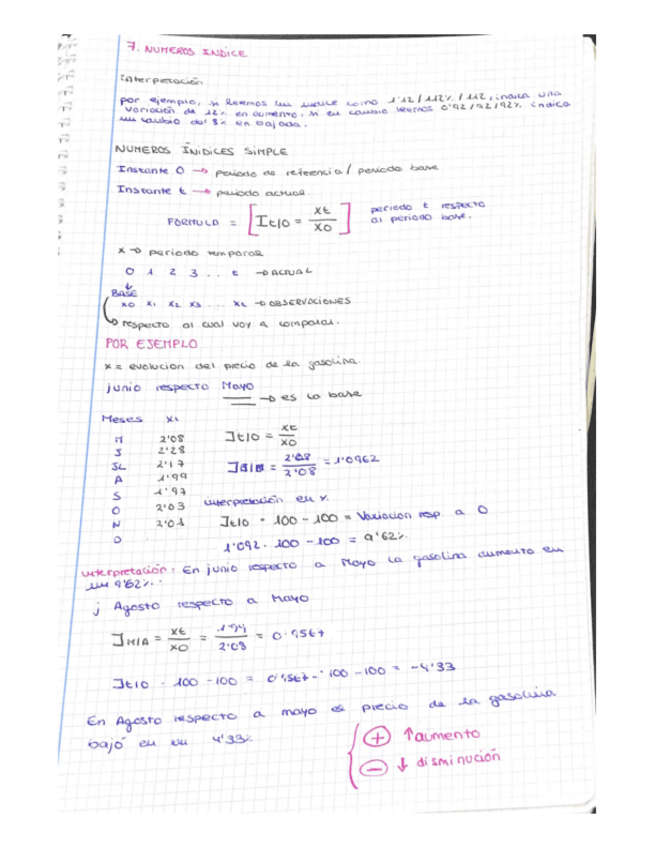 7. NUMEROS INDICE
interpretación
por ejemplo, si leemos un indice como 1'12/112%/112, indica una
variación de 12% en aumento, si en cambio leemos 0'92/92/92% indica
un cambio del 8% en bajada.
NUMEROS ÍNIDICES SIMPLE
Instante 0 → periodo de referencia / periodo base
Instante t → periodo actual.
FORMULA = [It/0 = xt/x0] periodo t respecto
al periodo base.
x → periodo temporal
0 1 2 3 .. t → ACTUAL
↓
BASE
x0 x1 x2 x3 ... xt → OBSERVACIONES
→ respecto al cual voy a comparar.
POR EJEMPLO
x = evolucion del precio de la gasolina.
junio respecto Mayo
→ es la base
Meses xi
M 2'08
J 2'28
JL 2'17
A 1'99
S 1'97
O 2'03
N 2'01
D
It/0 = xt/x0
= 2'28/2'08 = 1'0962
interpretación en %
It/0 · 100 - 100 = Variacion resp. a 0
1'092 · 100 - 100 = 9'62%
interpretación: En junio respecto a Mayo la gasolina aumento en
un 9'62%.
¿ Agosto respecto a Mayo
IM/A = xt/x0 = 1'99/2'08 = 0'9567
It/0 · 100 - 100 = 0'9567 · 100 - 100 = -4'33
En Agosto respecto a mayo el precio de la gasolina
bajó en un 4'33%
+ ↑ aumento
- ↓ disminución